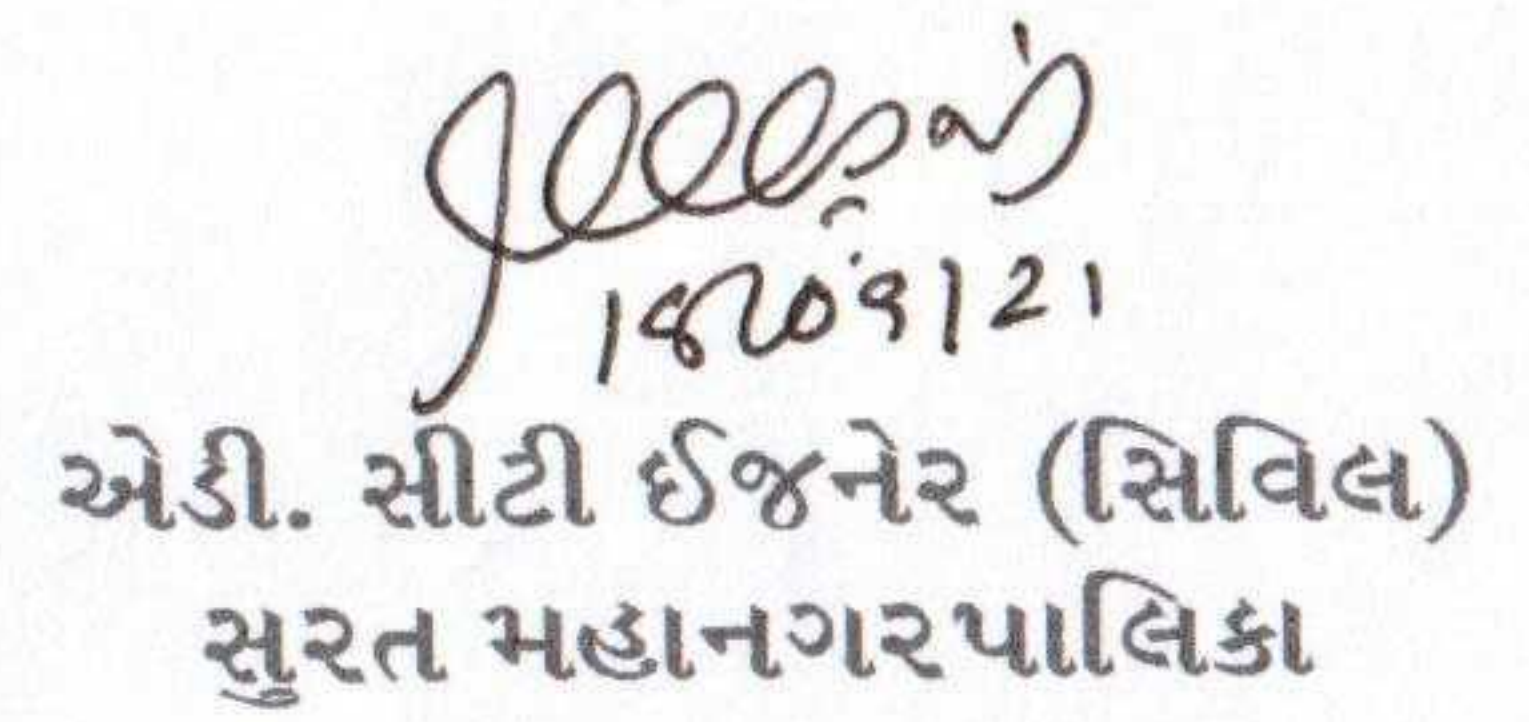 18/09/21
એડી. સીટી ઈજનેર (સિવિલ)
સુરત મહાનગરપાલિકા